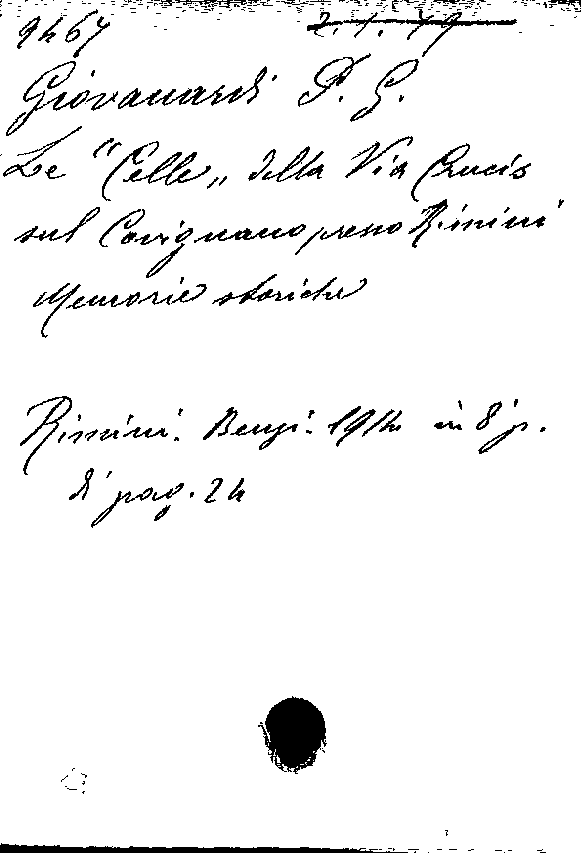 9464 2.1.79
Giovanardi P. G.
Le "Celle„ della Via Crucis
sul Covignano presso Rimini
Memorie storiche
Rimini. Bengi. 1914 in 8 p.
di pag. 24